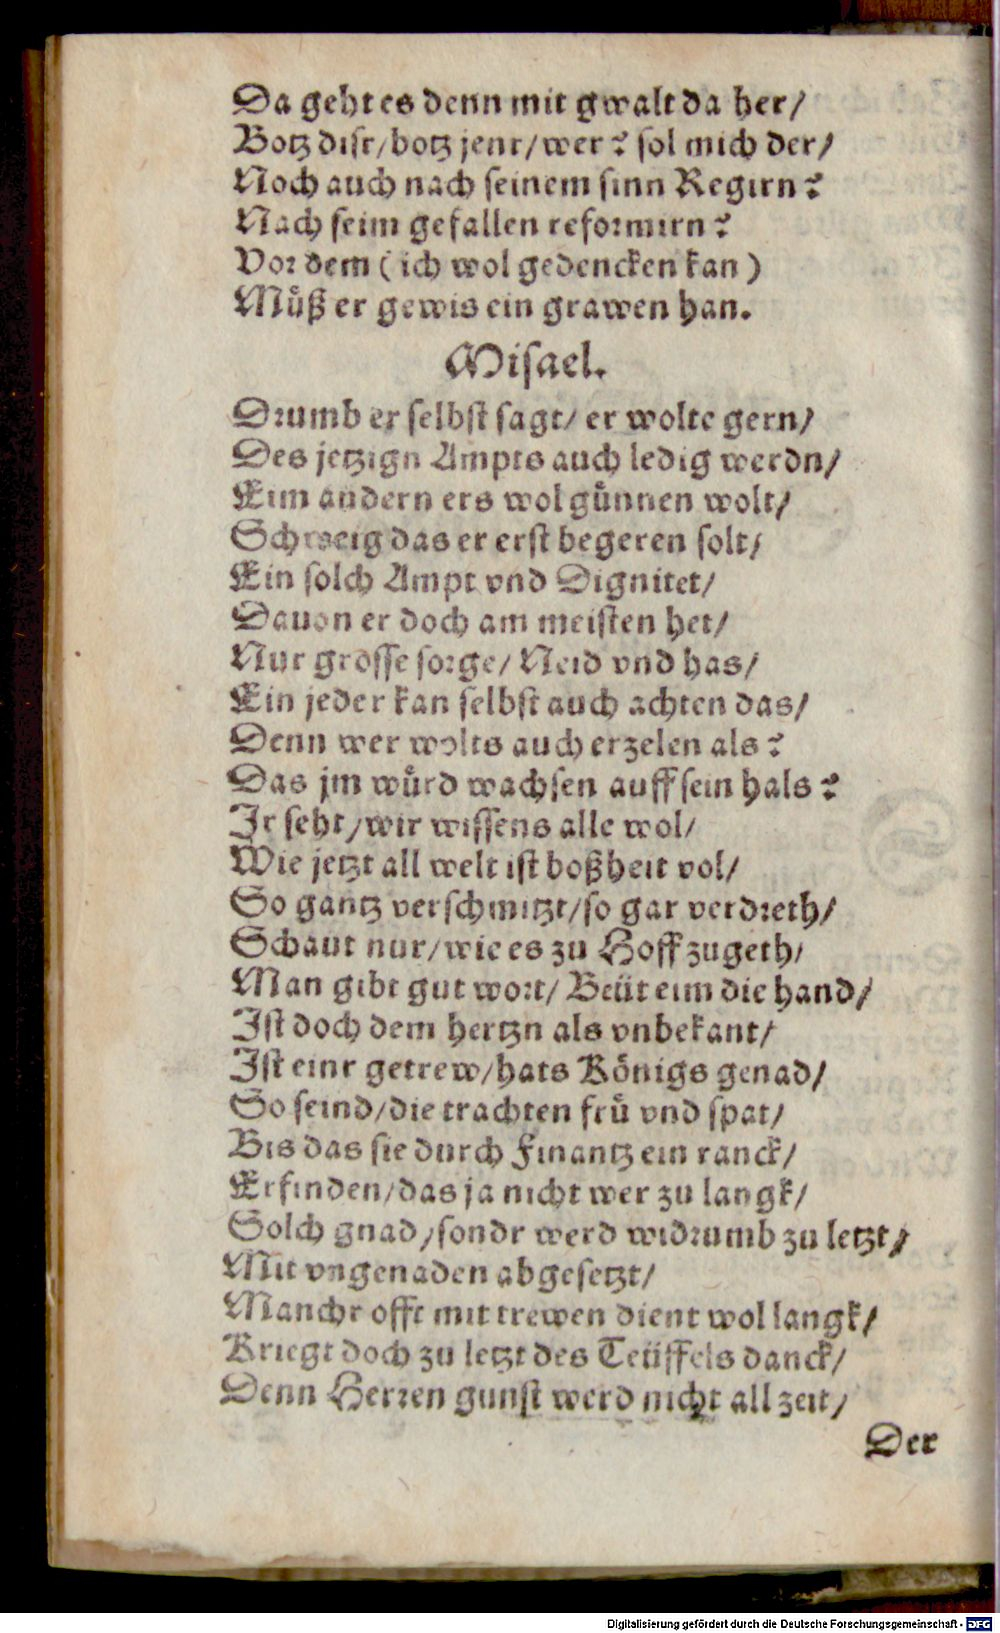 Da geht es denn mit gwalt da her/
Botz disr/botz jenr/wer? sol mich der/
Noch auch nach seinem sinn Regirn?
Nach seim gefallen reformirn?
Vor dem (ich wol gedencken kan)
Müß er gewis ein grawen han.
Misael.
Drumb er selbst sagt/ er wolte gern/
Des jetzign Ampts auch ledig werdn/
Eim andern ers wol günnen wolt/
Schweig das er erst begeren solt/
Ein solch Ampt vnd Dignitet/
Dauon er doch am meisten het/
Nur grosse sorge/ Neid vnd has/
Ein jeder kan selbst auch achten das/
Denn wer wolts auch erzelen als?
Das jm würd wachsen auff sein hals?
Ir seht/wir wissens alle wol/
Wie jetzt all welt ist boßheit vol/
So gantz verschmitzt/so gar verdreth/
Schaut nur/wie es zu Hoff zugeth/
Man gibt gut wort/ Beüt eim die hand/
Ist doch dem hertzn als vnbekant/
Ist einr getrew/hats Königs genad/
So seind/die trachten frü vnd spat/
Bis das sie durch Finantz ein ranck/
Erfinden/das ja nicht wer zu langk/
Solch gnad/sondr werd widrumb zu letzt/
Mit vngenaden abgesetzt/
Manchr offt mit trewen dient wol langk/
Kriegt doch zu letzt des Teüffels danck/
Denn Herren gunst werd nicht all zeit/
Der
Digitalisierung gefördert durch die Deutsche Forschungsgemeinschaft - DFG